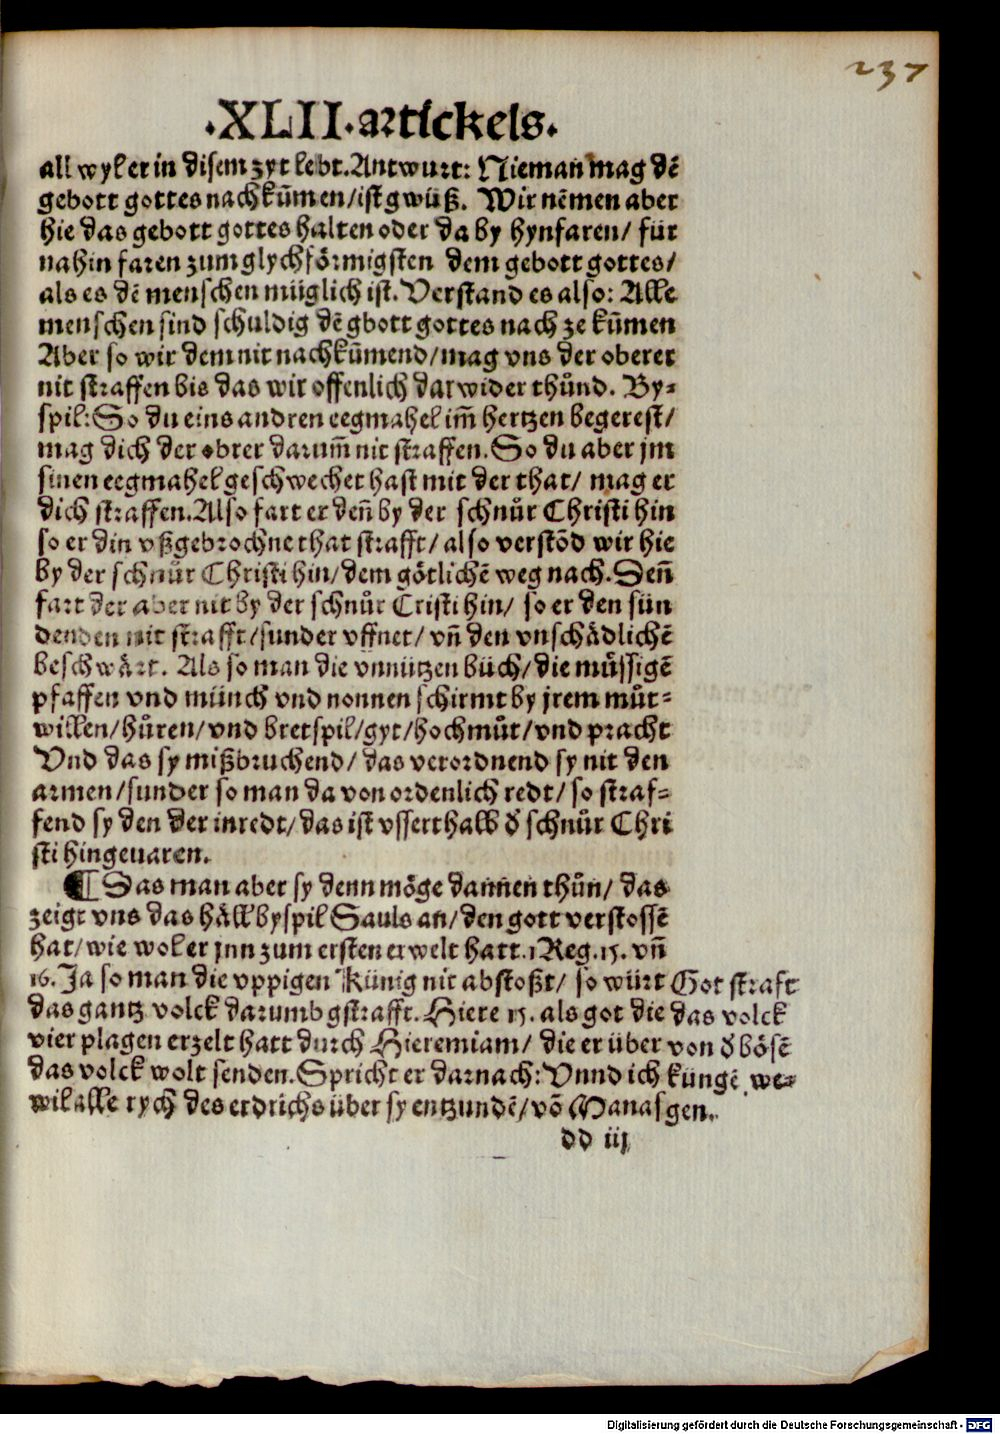 237
·XLII·artickels·
all wyl er in disem zyt lebt. Antwurt: Nieman mag dē
gebott gottes nachkūmen/ ist gwüß. Wir nēmen aber
hie das gebott gottes halten oder da by hynfaren/ für
nahin faren zum glychförmigsten dem gebott gottes/
als es dē menschen müglich ist. Verstand es also: Alle
menschen sind schuldig dē gbott gottes nach ze kūmen
Aber so wir dem nit nachkūmend/ mag vns der oberer
nit straffen bis das wir offenlich darwider thůnd. By-
spil: So du eins andren eegmahel im̄ hertzen begerest/
mag dich der obrer darum̄ nit straffen. So du aber jm
sinen eegmahel geschwechet hast mit der that/ mag er
dich straffen. Also fart er den̄ by der schnůr Christi hin
so er din vßgebrochne that strafft/ also verstōd wir hie
by der schnůr Christi hin/ dem götlichē weg nach. Den̄
fart der aber nit by der schnůr Cristi hin/ so er den sün
denden nit strafft/ sunder vffnet/ vn̄ den vnschädlichē
beschwärt. Als so man die vnnützen büch/ die müssigē
pfaffen vnd münch vnd nonnen schirmt by jrem můt-
willen/ hůren/ vnd bretspil/ gyt/ hochmůt/ vnd pracht
Vnd das sy mißbruchend/ das verordnend sy nit den
armen/ sunder so man da von ordenlich redt/ so straf-
fend sy den der inredt/ das ist vsserthalb d̄ schnůr Chri
sti hingeuaren.
¶ Das man aber sy denn möge dannen thůn/ das
zeigt vns das häll byspil Sauls an/ den gott verstossē
hat/ wie wol er jnn zum ersten erwelt hatt. 1 Reg. 15. vn̄
16. Ja so man die vppigen Künig nit abstoßt/ so würt Got straft
das gantz volck darumb gstrafft. Hiere 15. als got die das volck
vier plagen erzelt hatt durch Hieremiam/ die er über von d̄ bösē
das volck wolt senden. Spricht er darnach: Vnnd ich küngē we-
wil alle rych des erdrichs über sy entzundē/ vō Manas gen.
dd iij
Digitalisierung gefördert durch die Deutsche Forschungsgemeinschaft - DFG